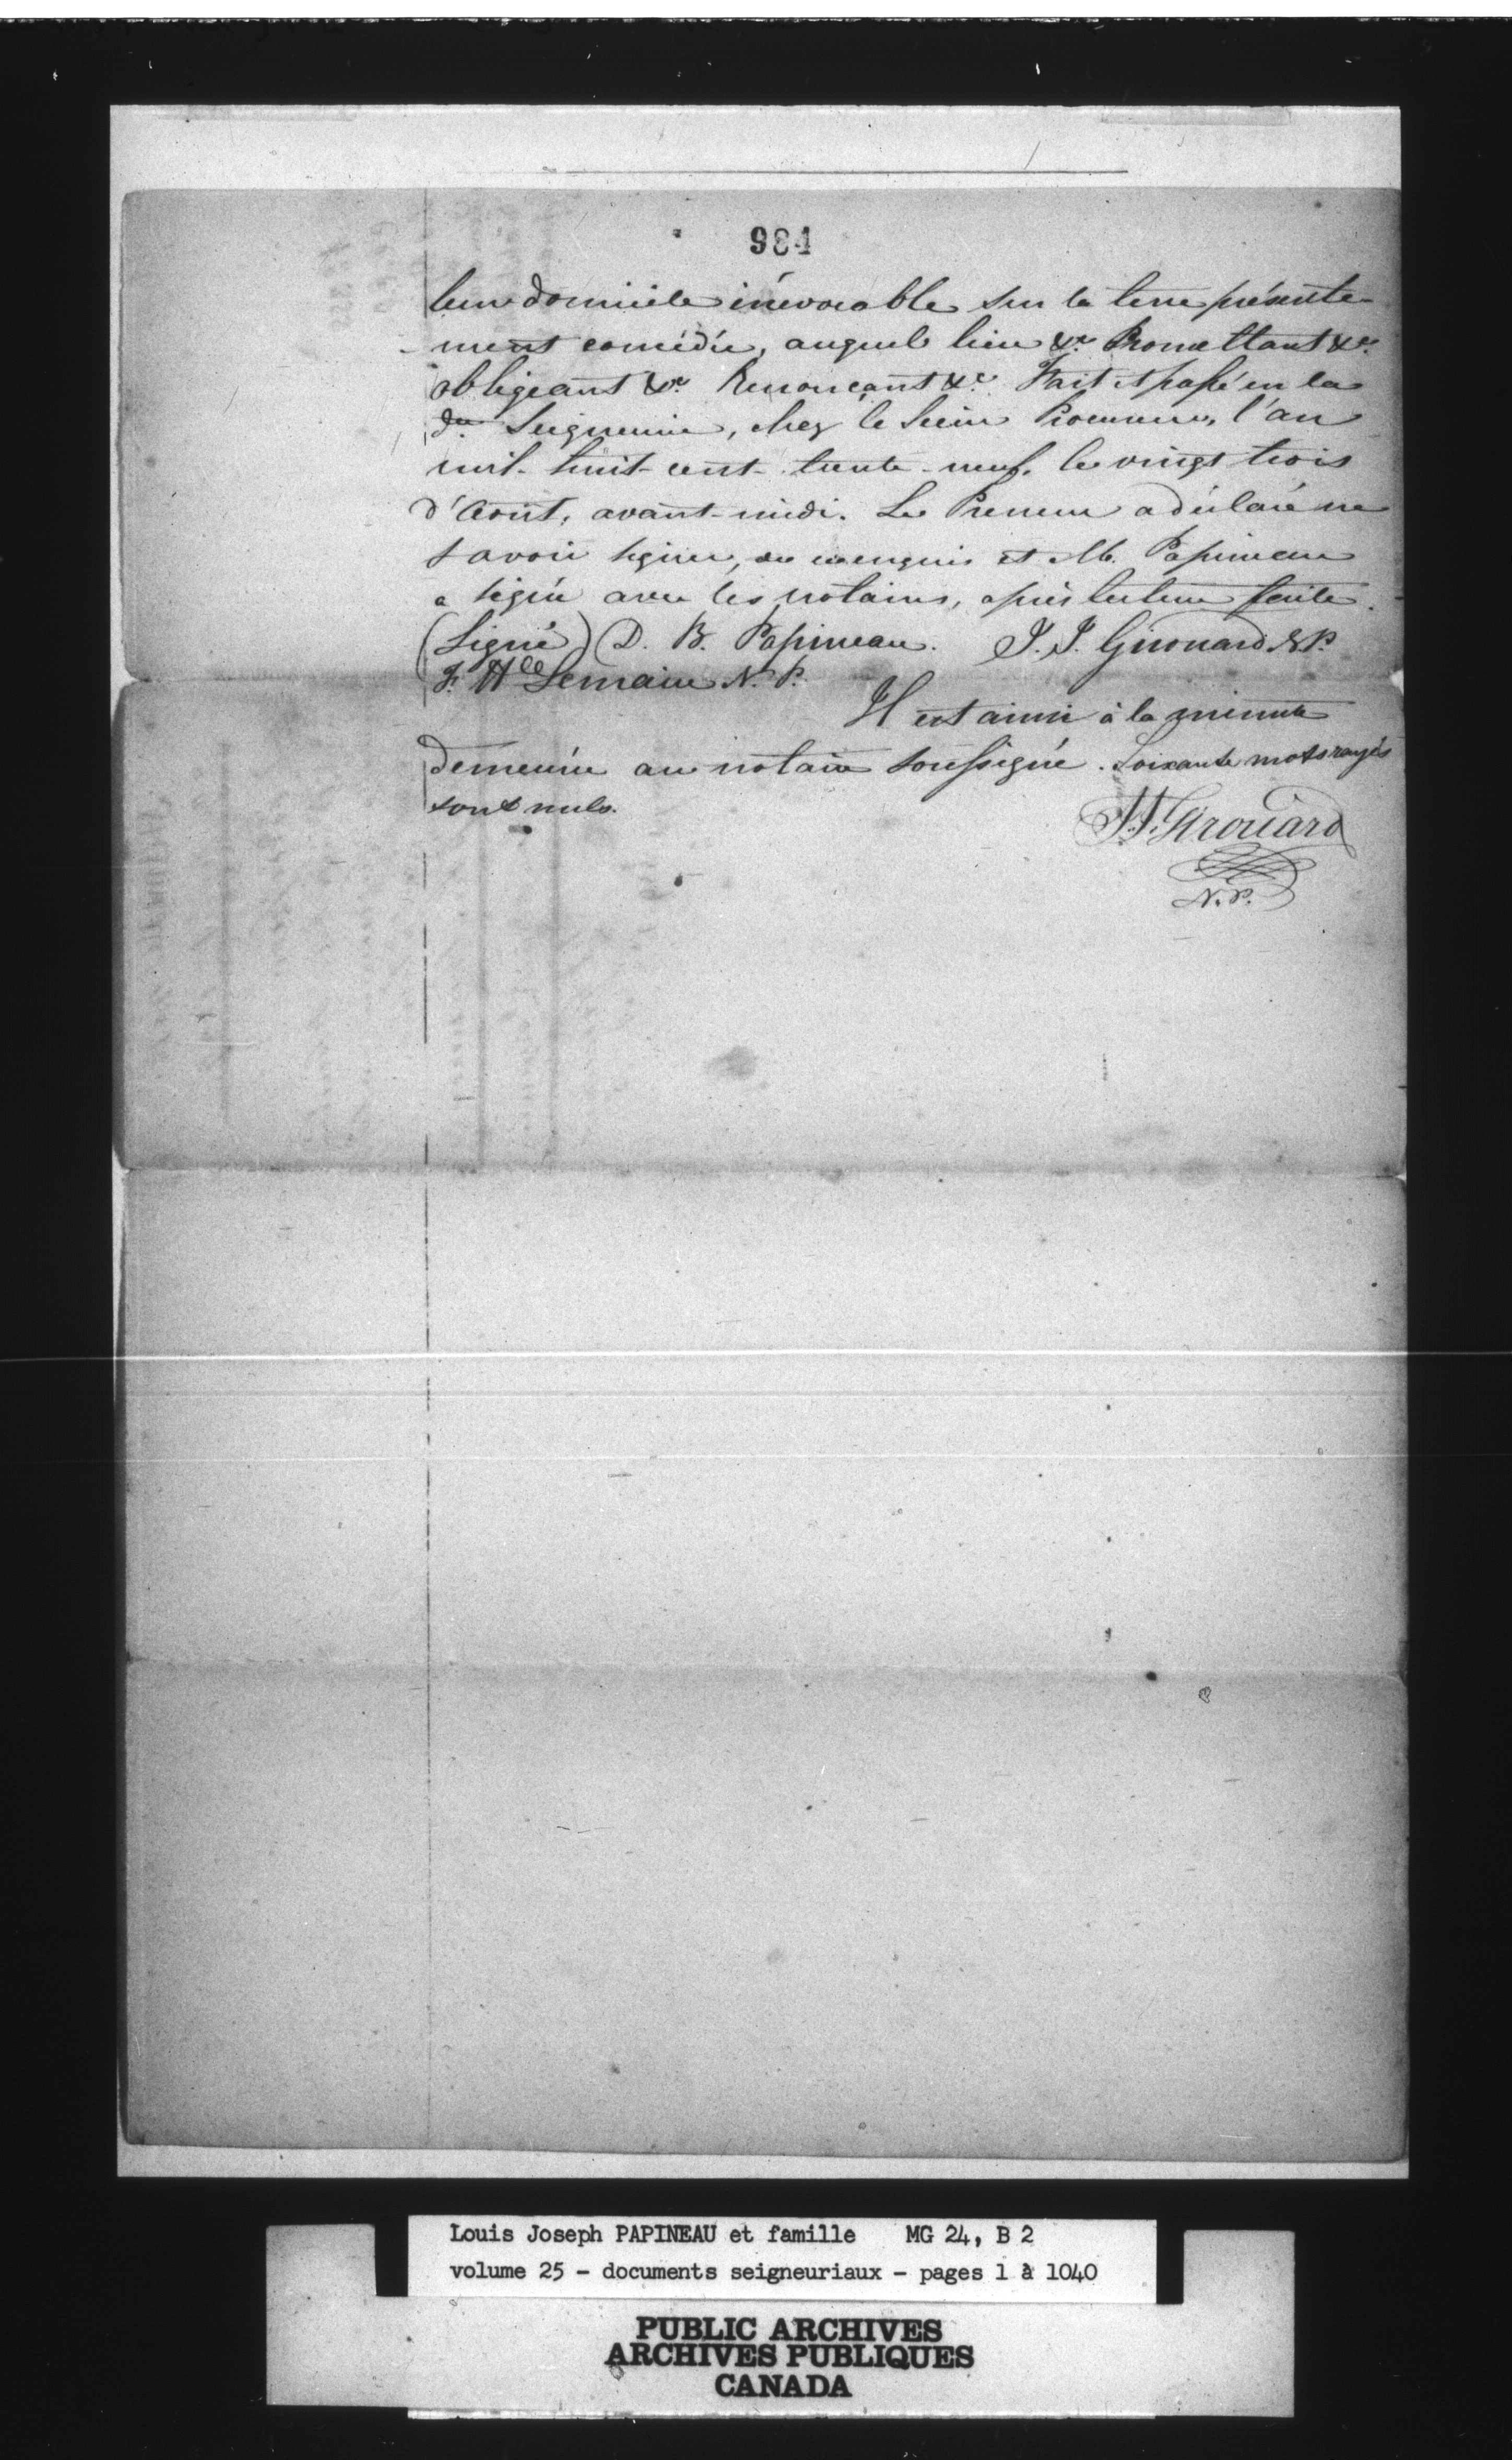 984
leur domicile irrévocable sur la terre présente-
ment concédée, auquel lieu &c. Promettant &c.
obligeant &c. Renonçant &c. Fait et passé en la
de. Seigneurie, chez le Sieur Procureur, l'an
mil huit cent trente-neuf, le vingt trois
d'Aout, avant-midi. Le Preneur a déclaré ne
savoir signer, de ce enquis et M. Papineau
a signé avec les notaires, après lecture faite.
(Signé) D. B. Papineau. J. J. Girouard N.P.
F. Hce Lemaire N. P.
Il est ainsi à la minute
demeurée au notaire soussigné. Soixante mots rayés
sont nuls.
J. J. Girouard
N. P.
Louis Joseph PAPINEAU et famille MG 24, B 2
volume 25 - documents seigneuriaux - pages 1 à 1040
PUBLIC ARCHIVES
ARCHIVES PUBLIQUES
CANADA